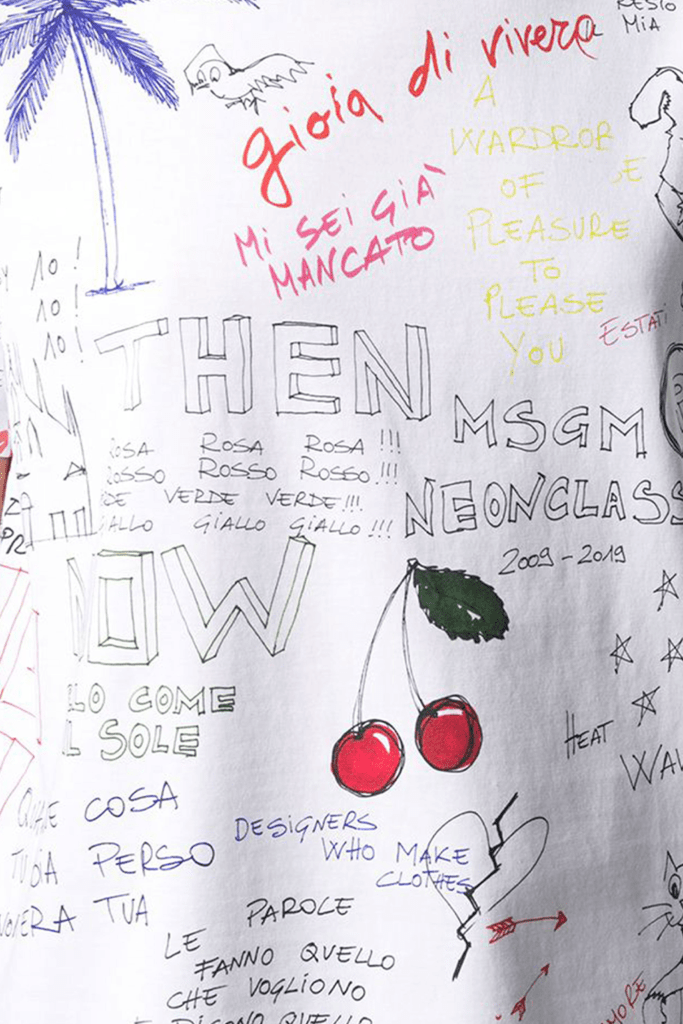 RESTO
MIA
gioia di vivere
A
WARDROBE
OF
PLEASURE
TO
PLEASE
YOU
MI SEI GIÀ
MANCATO
10!
10!
10!
ESTATI
THEN
MSGM
NEONCLASS
2009-2019
ROSA ROSA ROSA!!!
ROSSO ROSSO ROSSO!!!
RDE VERDE VERDE!!!
GIALLO GIALLO GIALLO!!!
NOW
LO COME
L SOLE
HEAT
WAV
COSA
PERSO
TUA
DESIGNERS
WHO MAKE
CLOTHES
LE PAROLE
FANNO QUELLO
CHE VOGLIONO
E DICONO QUELLO
MORE